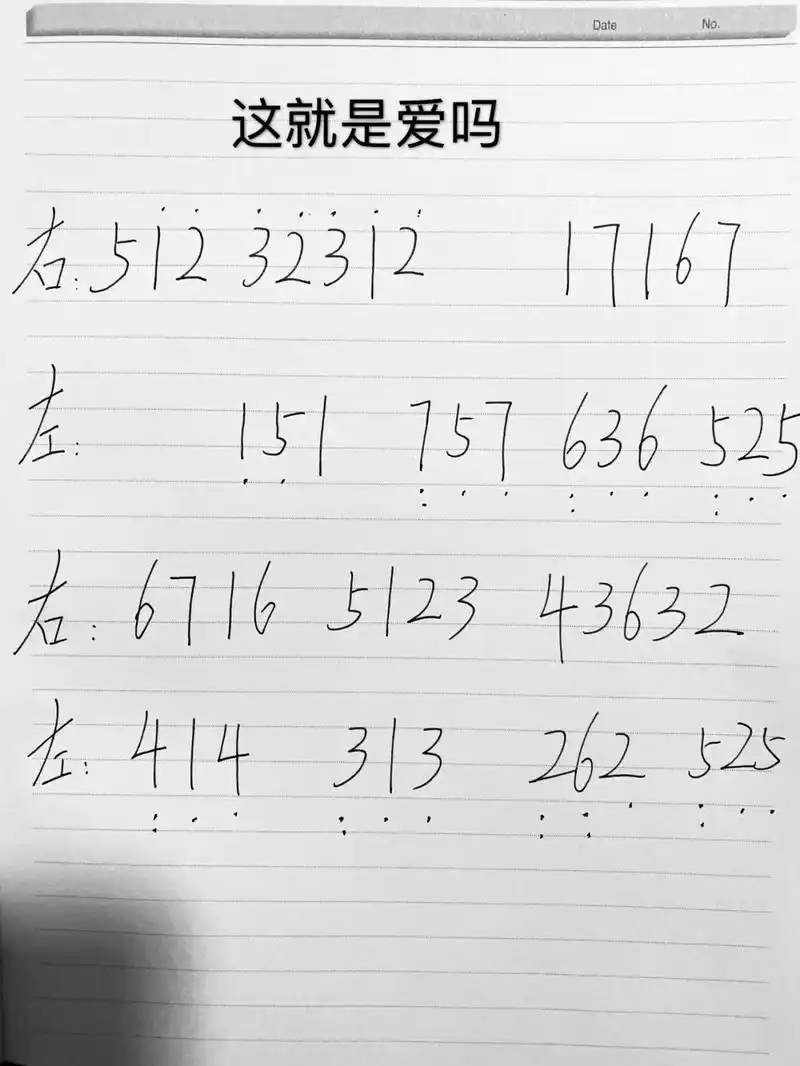 Date No.
这就是爱吗
右: 5 1̇ 2̇ 3̇ 2̇ 3̇ 1̇ 2̇ 1 7 1 6 7
左: 1̣ 5̣ 1 7̤ 5̣ 7̣ 6̤ 3̣ 6̣ 5̤ 2̣ 5̣
右: 6 7 1 6 5 1 2 3 4 3 6 3 2
左: 4̤ 1̣ 4̣ 3̤ 1̣ 3̣ 2̤ 6̤ 2̣ 5̤ 2̣ 5̣